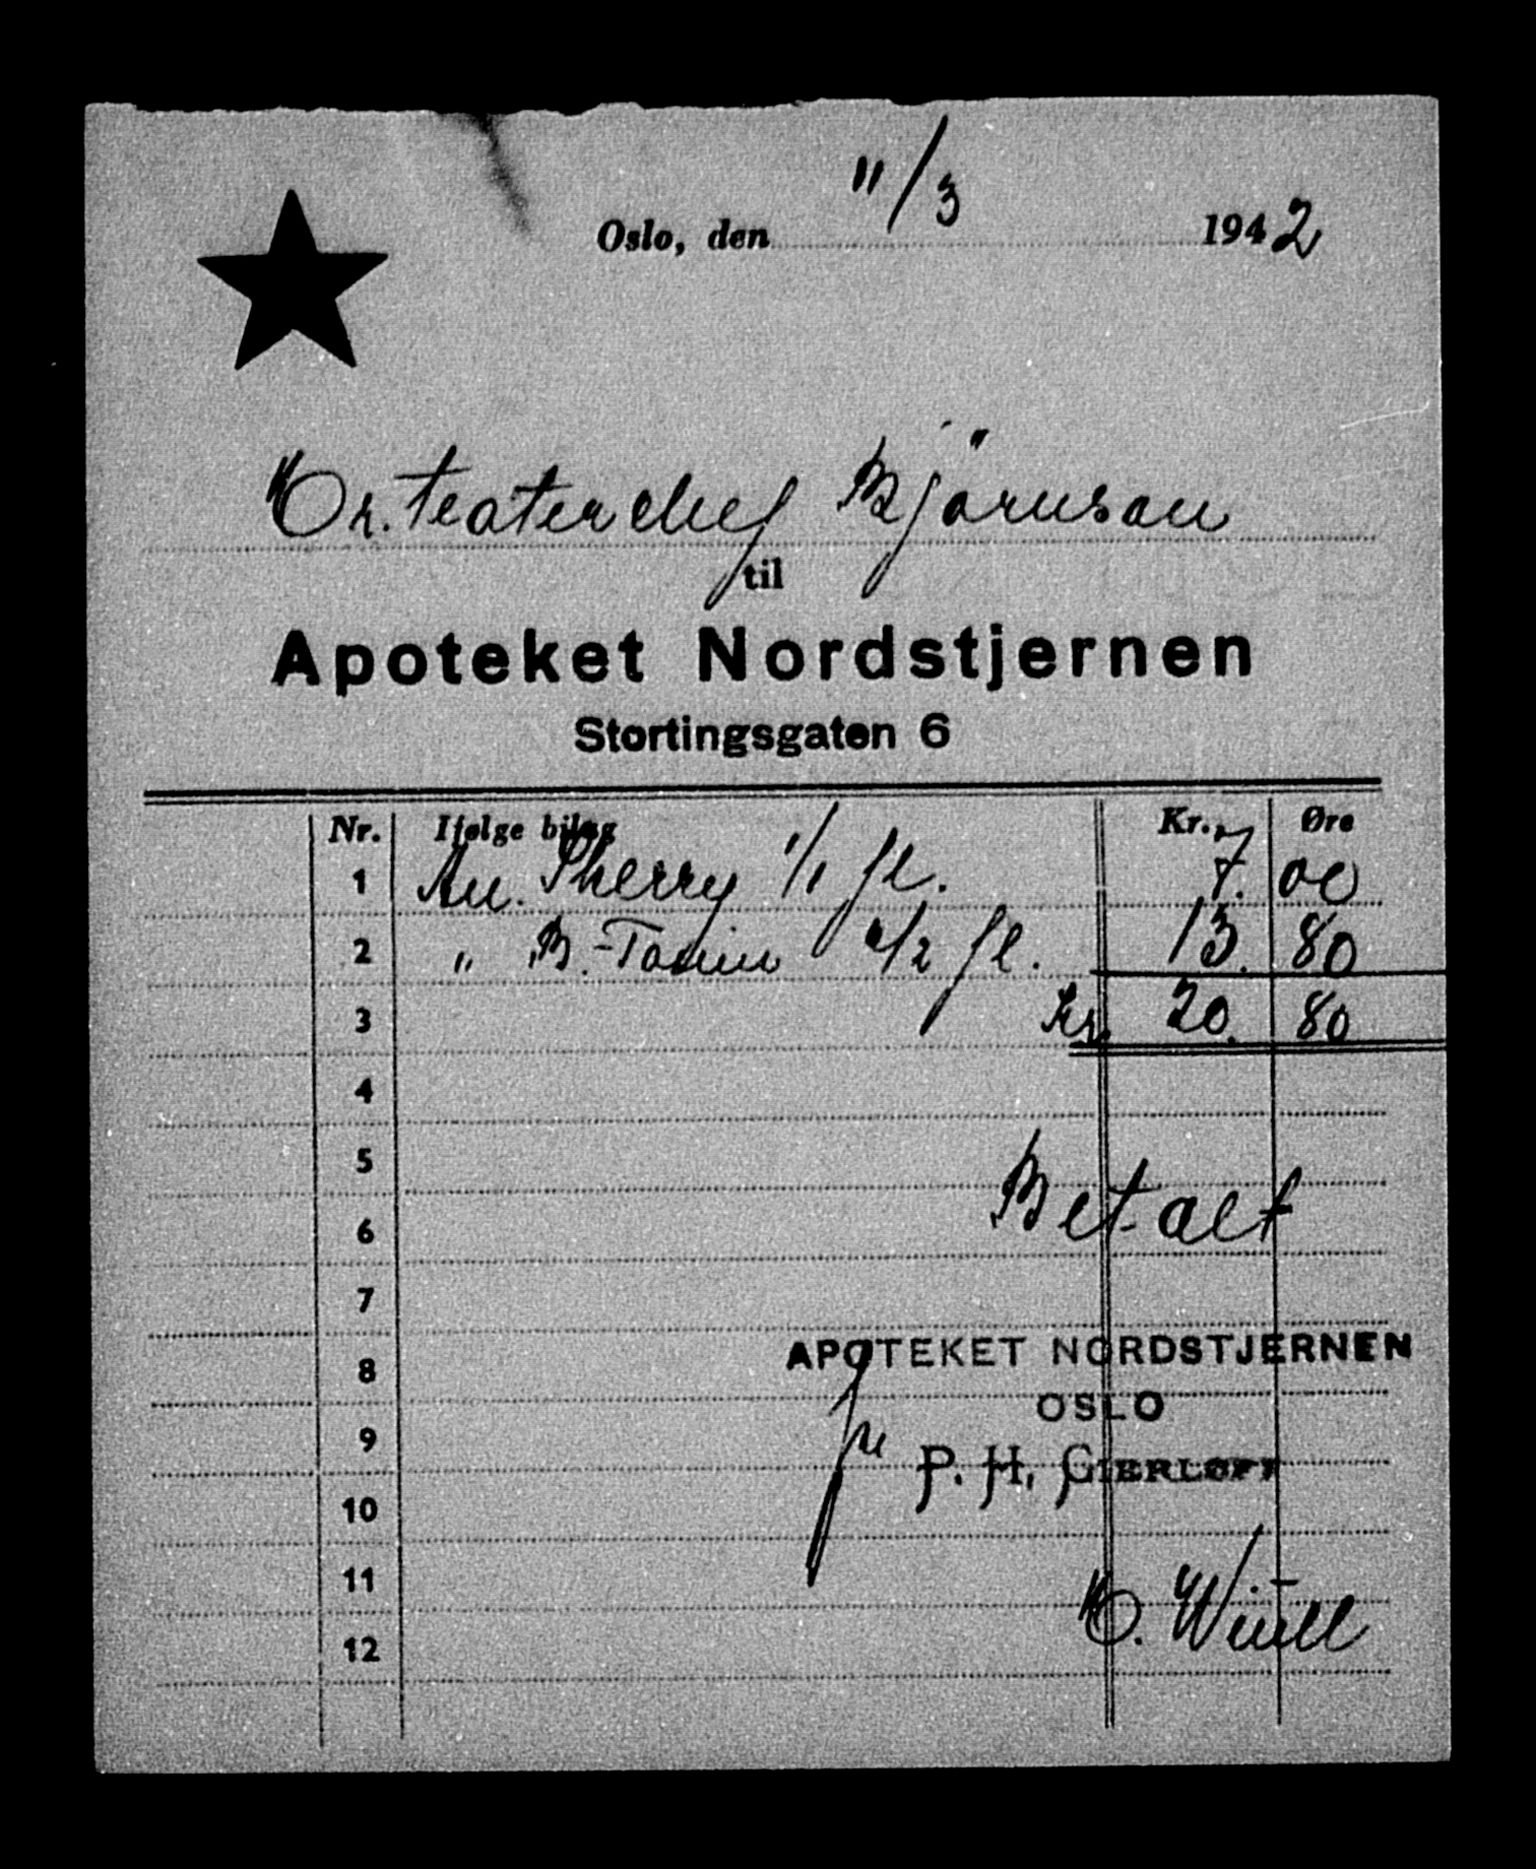 Oslo, den 11/3 1942
Hr. teaterchef Bjørnson
til
Apoteket Nordstjernen
Stortingsgaten 6
Nr. Ifølge bilag Kr. Øre
1 An. Sherry 1/1 fl. 7. 00
2 „ B.- fl. 13. 80
3 Kr. 20. 80
4
5
6 Betalt
7
8 APOTEKET NORDSTJERNEN
OSLO
9 P. H. GIERLØFF
10
11
12 H.